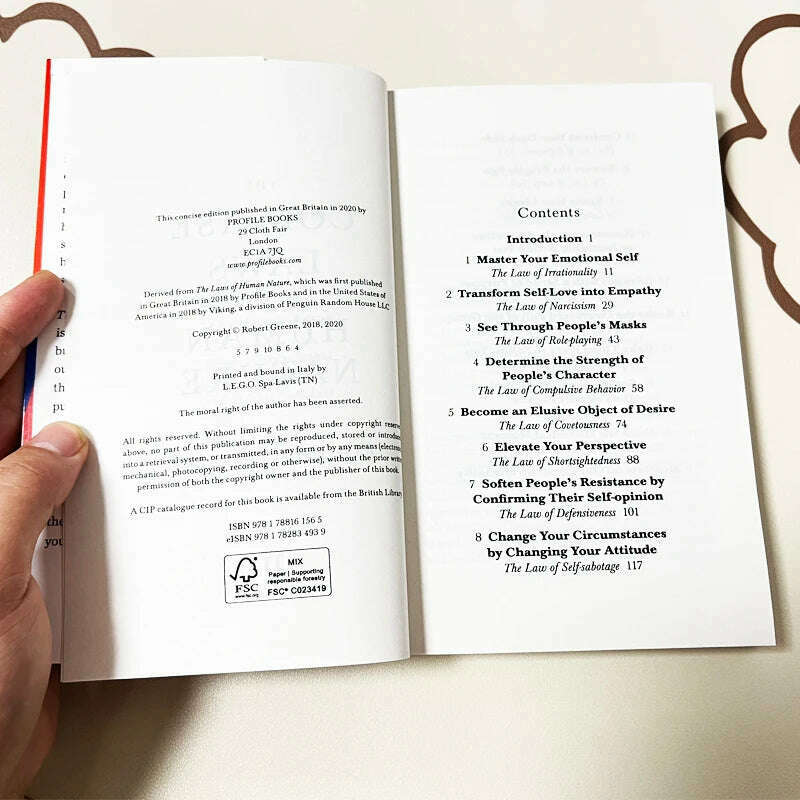 This concise edition published in Great Britain in 2020 by
PROFILE BOOKS
29 Cloth Fair
London
EC1A 7JQ
www.profilebooks.com
Derived from The Laws of Human Nature, which was first published
in Great Britain in 2018 by Profile Books and in the United States of
America in 2018 by Viking, a division of Penguin Random House LLC
Copyright © Robert Greene, 2018, 2020
5 7 9 10 8 6 4
Printed and bound in Italy by
L.E.G.O. Spa-Lavis (TN)
The moral right of the author has been asserted.
All rights reserved. Without limiting the rights under copyright reserve
above, no part of this publication may be reproduced, stored or introduc
into a retrieval system, or transmitted, in any form or by any means (electron
mechanical, photocopying, recording or otherwise), without the prior writte
permission of both the copyright owner and the publisher of this book.
A CIP catalogue record for this book is available from the British Library
ISBN 978 1 78816 156 5
eISBN 978 1 78283 493 9
FSC
www.fsc.org
MIX
Paper | Supporting
responsible forestry
FSC® C023419
Contents
Introduction 1
1 Master Your Emotional Self
The Law of Irrationality 11
2 Transform Self-Love into Empathy
The Law of Narcissism 29
3 See Through People's Masks
The Law of Role-playing 43
4 Determine the Strength of
People's Character
The Law of Compulsive Behavior 58
5 Become an Elusive Object of Desire
The Law of Covetousness 74
6 Elevate Your Perspective
The Law of Shortsightedness 88
7 Soften People's Resistance by
Confirming Their Self-opinion
The Law of Defensiveness 101
8 Change Your Circumstances
by Changing Your Attitude
The Law of Self-sabotage 117